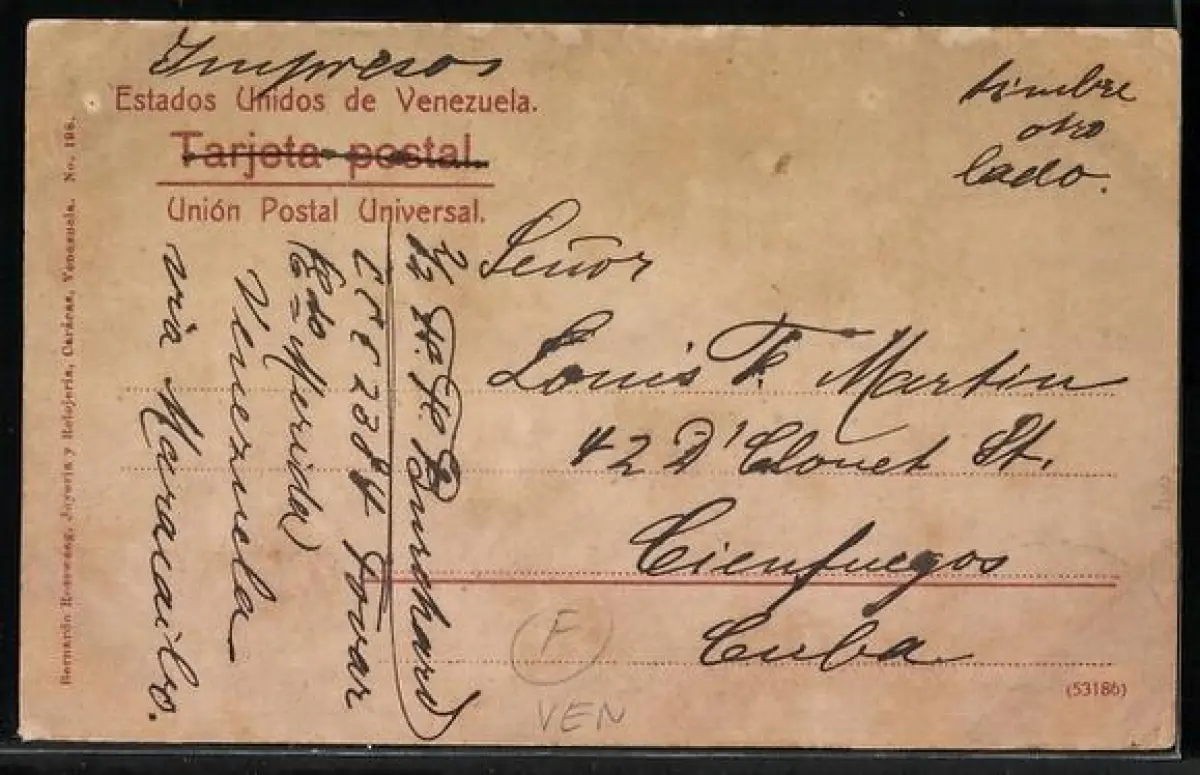 Impresos
Estados Unidos de Venezuela.
Tarjeta postal
Unión Postal Universal.
timbre
otro
lado.
Señor
Louis F. Martin
42 D'Clouet St.
Cienfuegos
Cuba
H. Burchard
CCC 2384 Tovar
Edo Merida
Venezuela
via Maracaibo.
Bernardo Rosswaag, Joyería y Relojería, Carácas, Venezuela. No. 198.
F
VEN
(53186)